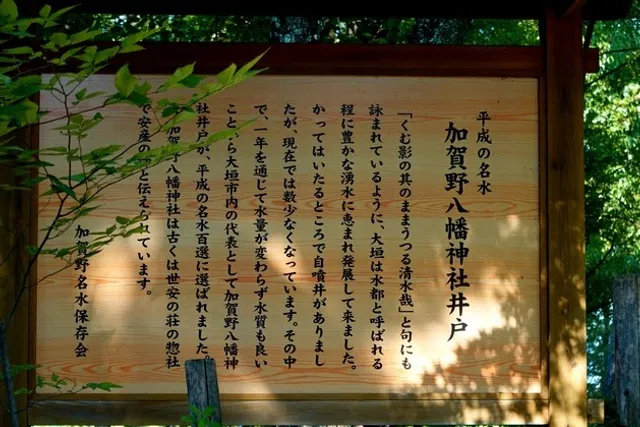 平成の名水
加賀野八幡神社井戸
「くむ影の其のままうつる清水哉」と句にも
詠まれているように、大垣は水都と呼ばれる
程に豊かな湧水に恵まれ発展して来ました。
かってはいたるところで自噴井がありまし
たが、現在では数少なくなっています。その中
で、一年を通じて水量が変わらず水質も良い
ことから大垣市内の代表として加賀野八幡神
社井戸が、平成の名水百選に選ばれました。
加賀野八幡神社は古くは世安の荘の惣社
で安産の と伝えられています。
加賀野名水保存会